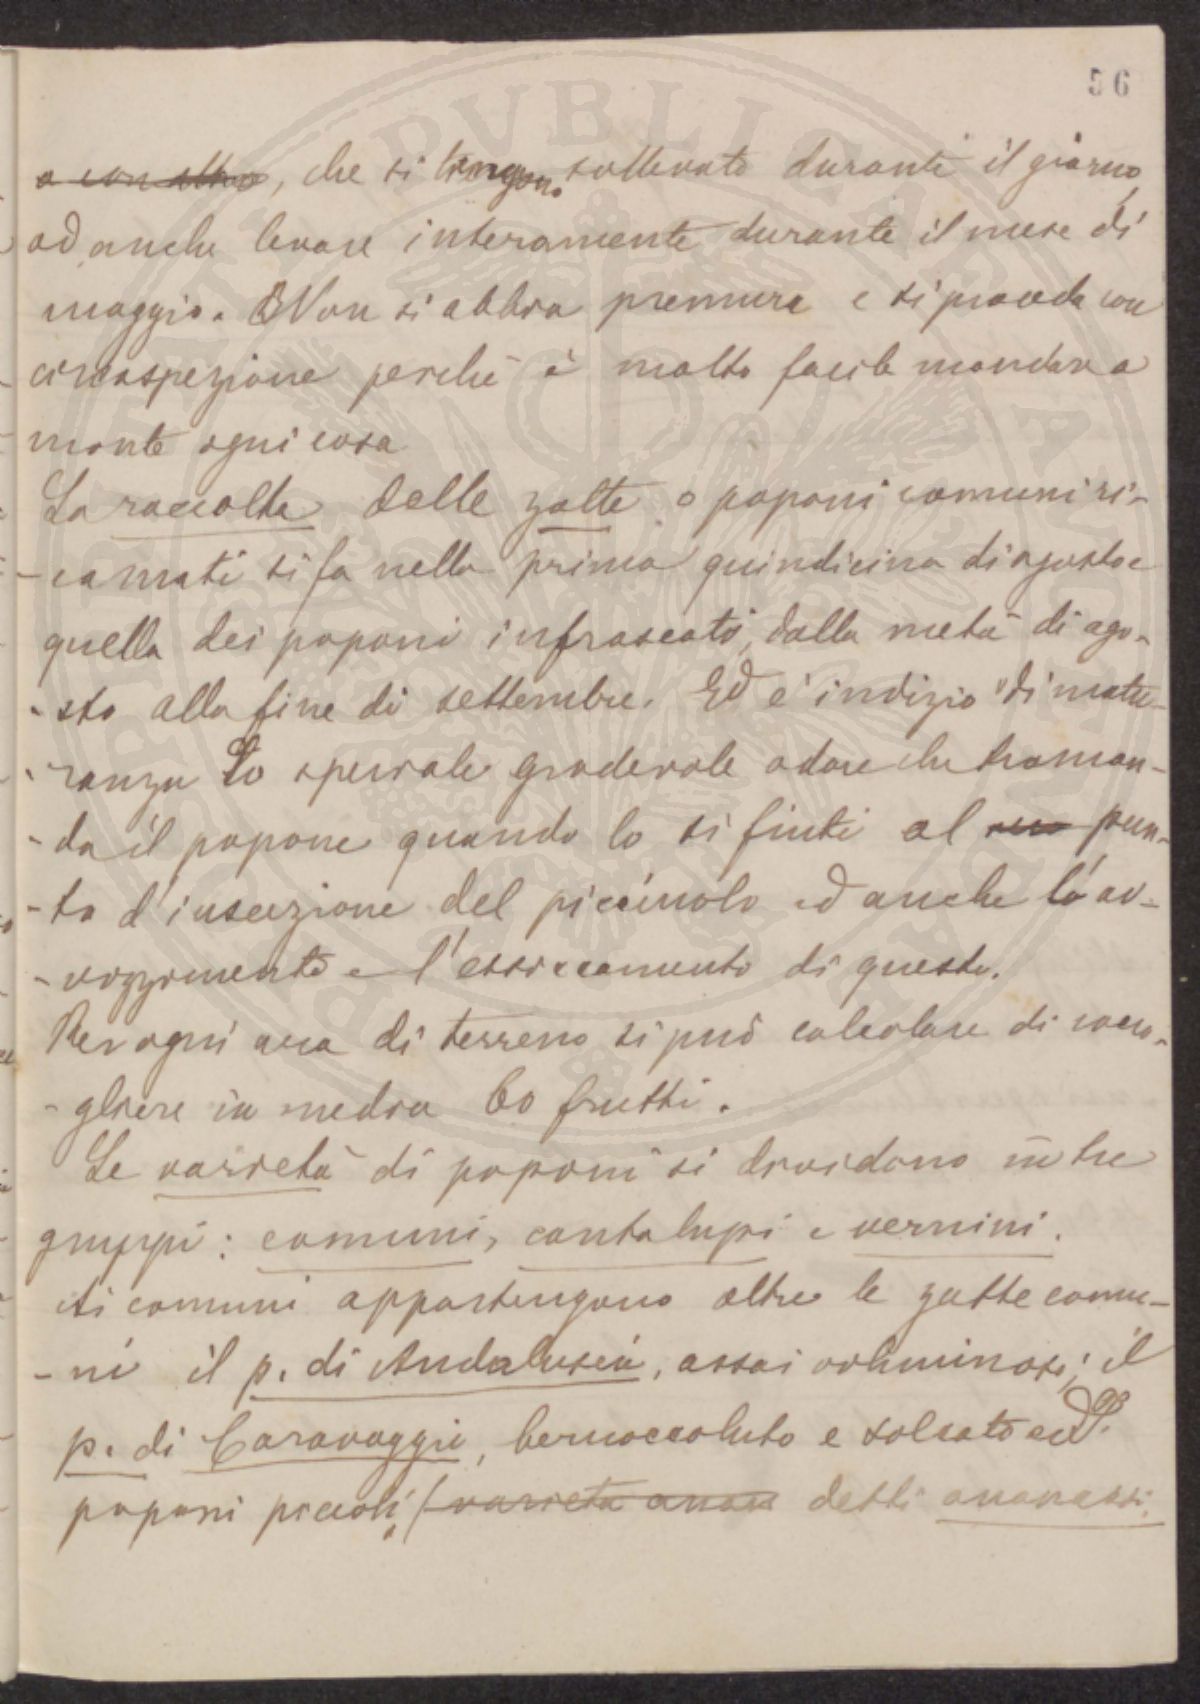 56
o con altro, che si tengono sollevate durante il giorno,
ad anche levare interamente durante il mese di
maggio. Non si abbia premura e si proceda con
circospezione perchè è molto facile mandare a
monte ogni cosa
La raccolta delle zatte o poponi comuni ri-
-camati si fa nella prima quindicina di agosto e
quella dei poponi infrascati, dalla metà di ago-
-sto alla fine di settembre. Ed è indizio di matu-
-ranza lo speciale gradevole odore che traman-
-da il popone quando lo si fiuti al pun-
-to d'inserzione del picciuolo ed anche l'av-
-vizzimento e l'essiccamento di questo.
Per ogni ara di terreno si può calcolare di racco-
-gliere in media 60 frutti.
Le varietà di poponi si dividono in tre
gruppi: comuni, cantalupi e vernini.
Ai comuni appartengono oltre le zatte comu-
-ni il p. di Andalusia, assai voluminosi; il
p. di Caravaggio, bernoccoluto e solcato ed i
poponi piccoli, (varietà anas detti ananassi.